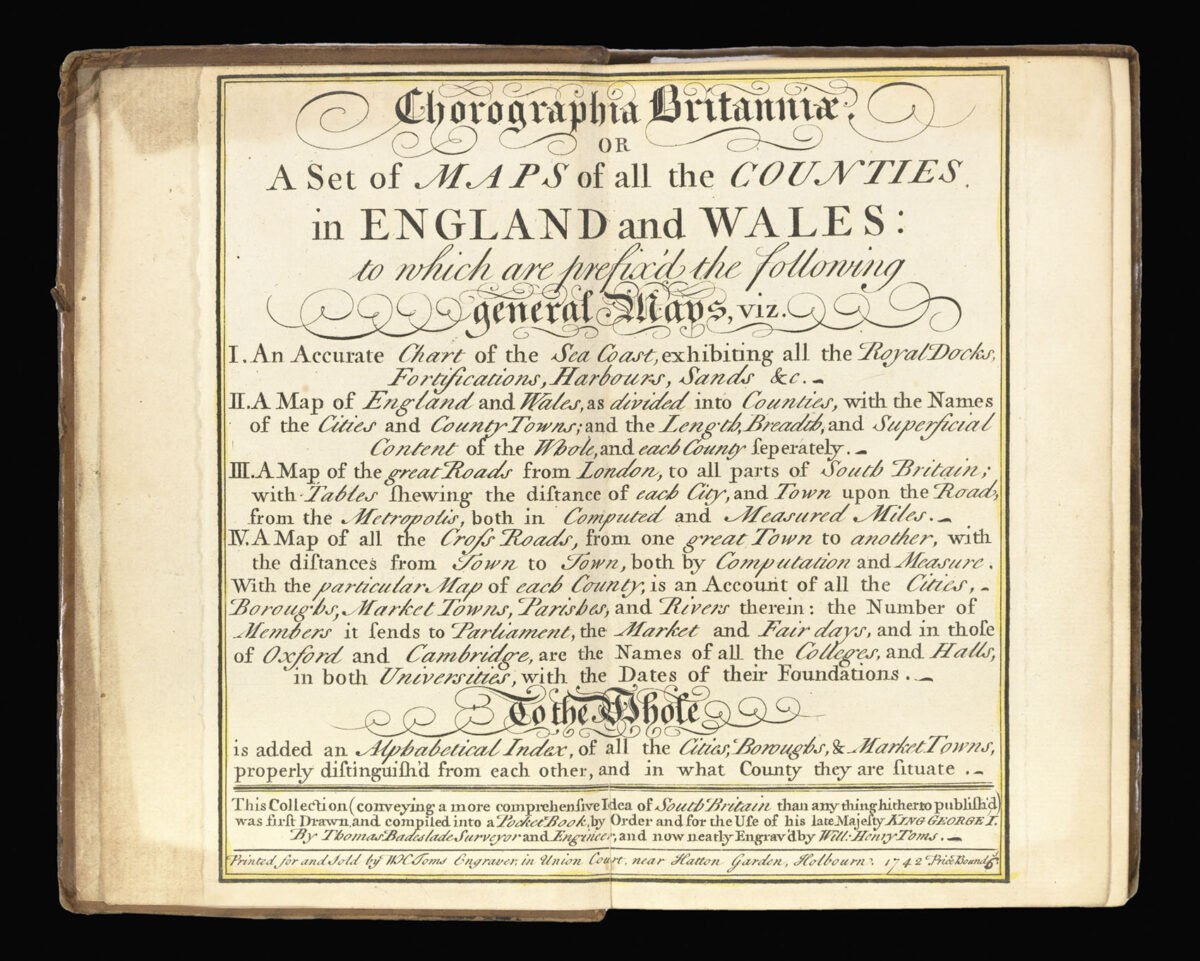 Chorographia Britanniæ.
OR
A Set of MAPS of all the COUNTIES
in ENGLAND and WALES:
to which are prefix'd the following
general Maps, viz.
I. An Accurate Chart of the Sea Coast, exhibiting all the Royal Docks,
Fortifications, Harbours, Sands &c.
II. A Map of England and Wales, as divided into Counties, with the Names
of the Cities and County Towns; and the Length, Breadth, and Superficial
Content of the Whole, and each County ſeperately.
III. A Map of the great Roads from London, to all parts of South Britain;
with Tables ſhewing the diſtance of each City, and Town upon the Road,
from the Metropolis, both in Computed and Measured Miles.
IV. A Map of all the Croſs Roads, from one great Town to another, with
the diſtances from Town to Town, both by Computation and Measure.
With the particular Map of each County, is an Account of all the Cities,
Boroughs, Market Towns, Parishes, and Rivers therein: the Number of
Members it ſends to Parliament, the Market and Fair days, and in thoſe
of Oxford and Cambridge, are the Names of all the Colleges, and Halls,
in both Universities, with the Dates of their Foundations.
To the Whole
is added an Alphabetical Index, of all the Cities, Boroughs, & Market Towns,
properly diſtinguiſh'd from each other, and in what County they are ſituate.
This Collection (conveying a more comprehenſive Idea of South Britain than any thing hitherto publiſh'd)
was firſt Drawn, and compiled into a Pocket Book, by Order and for the Uſe of his late Majeſty KING GEORGE I.
By Thomas Badeslade Surveyor and Engineer, and now neatly Engrav'd by Will: Henry Toms.
Printed for and Sold by W.H. Toms Engraver, in Union Court, near Hatton Garden, Holbourn. 1742 Price Bound 6s